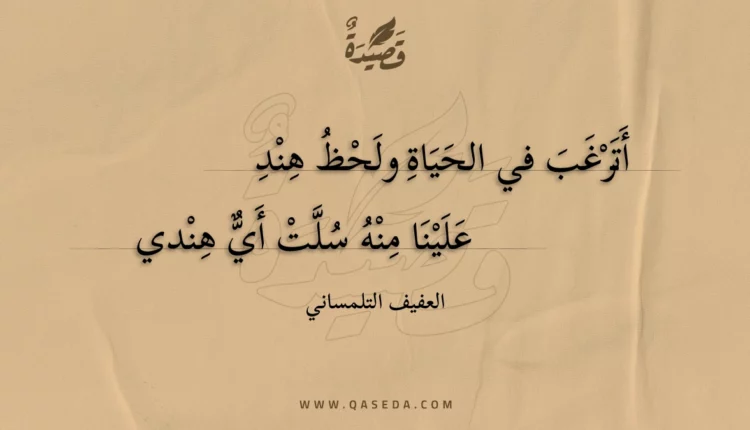 قَصِيدَةٌ
أَتَرْغَبَ في الحَيَاةِ ولَحْظُ هِنْدِ
عَلَيْنَا مِنْهُ سُلَّتْ أَيٌّ هِنْدي
العفيف التلمساني
WWW.QASEDA.COM